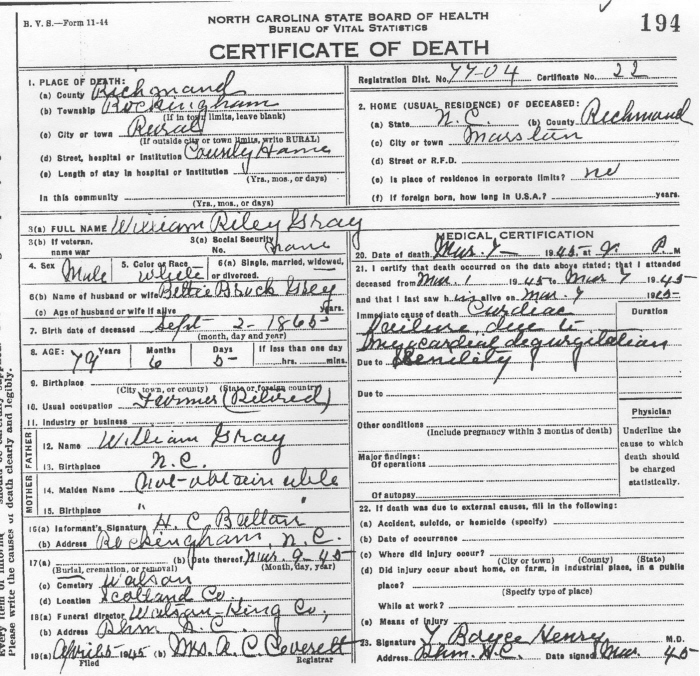 B. V. S.—Form 11-44
NORTH CAROLINA STATE BOARD OF HEALTH
BUREAU OF VITAL STATISTICS
194
CERTIFICATE OF DEATH
1. PLACE OF DEATH:
(a) County Richmond
(b) Township Rockingham
(If in town limits, leave blank)
(c) City or town Rural
(If outside city or town limits, write RURAL)
(d) Street, hospital or institution County Home
(e) Length of stay in hospital or institution
(Yrs., mos., or days)
In this community
(Yrs., mos., or days)
Registration Dist. No. 77-04 Certificate No. 22
2. HOME (USUAL RESIDENCE) OF DECEASED:
(a) State N.C. (b) County Richmond
(c) City or town Marston
(d) Street or R.F.D.
(e) Is place of residence in corporate limits? no
(f) If foreign born, how long in U.S.A.? years.
3(a) FULL NAME William Riley Gray
3(b) If veteran, name war
3(c) Social Security No. none
4. Sex Male
5. Color or Race White
6(a) Single, married, widowed, or divorced.
6(b) Name of husband or wife Bettie Gray
(c) Age of husband or wife if alive years.
7. Birth date of deceased Sept 2 - 1865
(month, day and year)
8. AGE: 79 Years 6 Months 5 Days If less than one day hrs. mins.
9. Birthplace
(City, town, or county) (State or foreign country)
10. Usual occupation Farmer (Retired)
11. Industry or business
FATHER
12. Name William Gray
13. Birthplace N.C.
MOTHER
14. Maiden Name Not-obtainable
15. Birthplace " "
16(a) Informant's Signature H. C.
(b) Address Rockingham, N.C.
17(a) (b) Date thereof Mar. 9-45
(Burial, cremation, or removal) (Month, day, year)
(c) Cemetery Watson
(d) Location Scotland Co.
18(a) Funeral director Watson-King Co,
(b) Address Rhm N.C.
19(a) April 5 1945 (b) Mrs. A. C. Everett
Filed Registrar
MEDICAL CERTIFICATION
20. Date of death Mar. 7- 1945 at 9 P. M
21. I certify that death occurred on the date above stated; that I attended
deceased from Mar. 1 1945 to Mar 7 1945
and that I last saw him alive on Mar. 7 1945
Immediate cause of death Cardiac
failure due to
myocardial
Due to Senility
Due to
Other conditions
(Include pregnancy within 3 months of death)
Major findings:
Of operations
Of autopsy
Duration
Physician
Underline the
cause to which
death should
be charged
statistically.
22. If death was due to external causes, fill in the following:
(a) Accident, suicide, or homicide (specify)
(b) Date of occurrence
(c) Where did injury occur?
(City or town) (County) (State)
(d) Did injury occur about home, on farm, in industrial place, in a public
place?
(Specify type of place)
While at work?
(e) Means of injury
23. Signature Boyce Henry M.D.
Address Rhm. N.C. Date signed Mar 45
Please write the causes of death clearly and legibly.